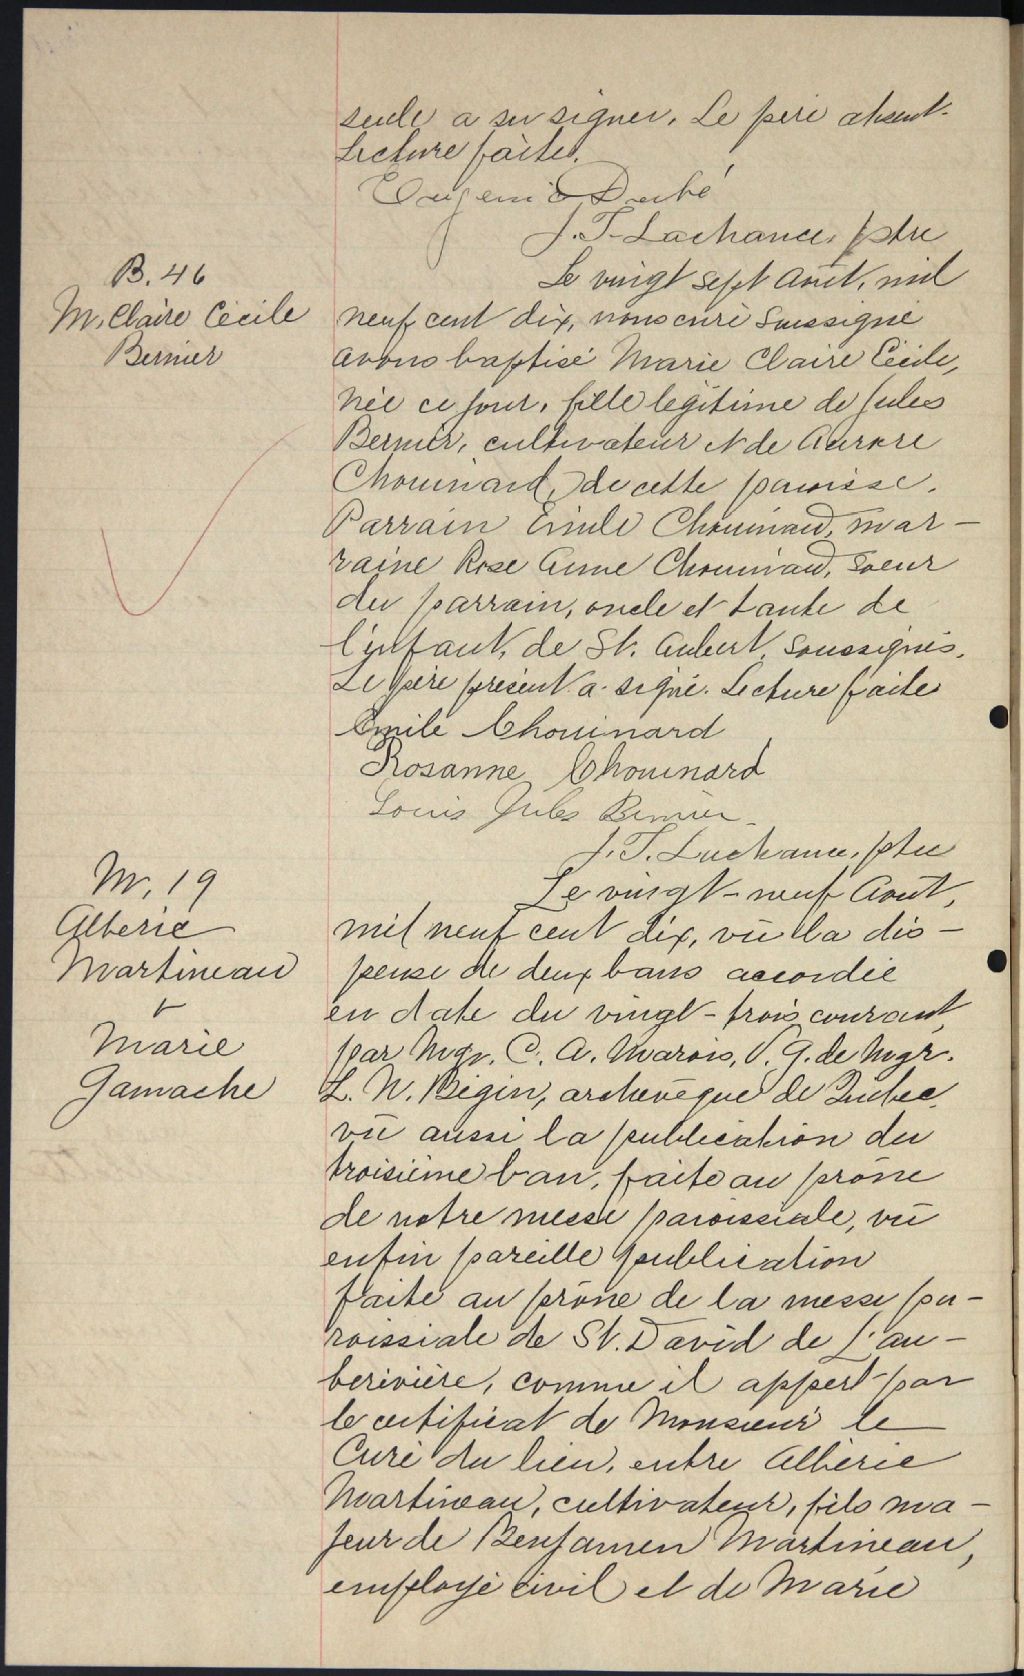 seule a su signer. Le père absent.
Lecture faite.
Eugenie Dubé
J. T. Lachance, ptre
B. 46
M. Claire Cécile
Bernier
Le vingt sept Août, mil
neuf cent dix, nous curé soussigné
avons baptisé Marie Claire Cécile,
née ce jour, fille légitime de Jules
Bernier, cultivateur et de Aurore
Chouinard, de cette paroisse.
Parrain Emile Chouinard, mar-
raine Rose Anne Chouinard, soeur
du parrain, oncle et tante de
l'enfant, de St. Aubert, soussignés.
Le père présent a signé. Lecture faite
Emile Chouinard
Rosanne Chouinard
Louis Jules Bernier
J. T. Lachance, ptre
M. 19
Alberic
Martineau
+
Marie
Gamache
Le vingt-neuf Août,
mil neuf cent dix, vû la dis-
pense de deux bans accordée
en date du vingt-trois courant,
par Mgr. C. A. Marois, V. G. de Mgr.
L. N. Bégin, archevêque de Québec,
vû aussi la publication du
troisième ban, faite au prône
de notre messe paroissiale, vû
enfin pareille publication
faite au prône de la messe pa-
roissiale de St. David de L'au-
berivière, comme il appert par
le certificat de Monsieur le
Curé du lieu, entre Albéric
Martineau, cultivateur, fils ma-
jeur de Benjamen Martineau,
employé civil et de Marie